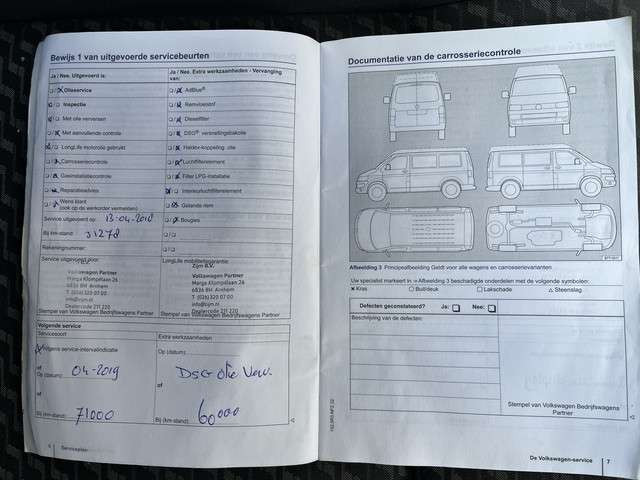 Bewijs 1 van uitgevoerde servicebeurten
Ja / Nee. Uitgevoerd is:
Ja / Nee. Extra werkzaamheden - Vervanging van:
Olieservice
AdBlue®
Inspectie
Remvloeistof
Met olie verversen
Dieselfilter
Met aanvullende controle
DSG® versnellingsbakolie
LongLife motorolie gebruikt
Haldex-koppeling: olie
Carrosseriecontrole
Luchtfilterelement
Gasinstallatiecontrole
Filter LPG-installatie
Reparatieadvies
Interieurluchtfilterelement
Wens klant
(ook op de werkorder vermelden)
Getande riem
Service uitgevoerd op: 13-04-2018
Bougies
Bij km-stand: 31278
Rekeningnummer:
Service uitgevoerd door:
LongLife mobiliteitsgarantie
Volkswagen Partner
Marga Klompélaan 26
6836 BH Arnhem
T (026) 320 07 00
info@zijm.nl
Dealercode 211 220
Stempel van Volkswagen Bedrijfswagens Partner
Volkswagen Partner
Marga Klompélaan 26
6836 BH Arnhem
T (026) 320 07 00
info@zijm.nl
Dealercode 211 220
Stempel van Volkswagen Bedrijfswagens Partner
Volgende service
Servicesoort
Extra werkzaamheden
Volgens service-intervalindicatie
of
Op (datum): 04-2019
of
Bij (km-stand): 71000
Op (datum):
DSG olie Verv.
of
Bij (km-stand): 60000
6 Serviceplan
Documentatie van de carrosseriecontrole
Afbeelding 3 Principeafbeelding Geldt voor alle wagens en carrosserievarianten
Uw specialist markeert in ⇒ Afbeelding 3 beschadigde onderdelen met de volgende symbolen:
× Kras ○ Buil/deuk □ Lakschade △ Steenslag
Defecten geconstateerd? Ja: Nee:
Beschrijving van de defecten:
Stempel van Volkswagen Bedrijfswagens
Partner
De Volkswagen-service 7